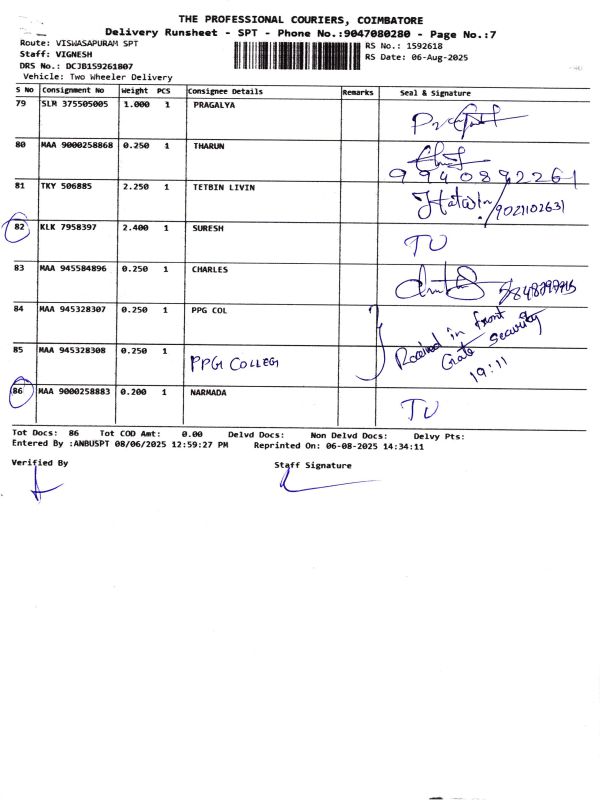 THE PROFESSIONAL COURIERS, COIMBATORE
Delivery Runsheet - SPT - Phone No.:9047080280 - Page No.:7
Route: VISWASAPURAM SPT
RS No.: 1592618
Staff: VIGNESH
RS Date: 06-Aug-2025
DRS No.: DCJB159261807
Vehicle: Two Wheeler Delivery
S No Consignment No Weight PCS Consignee Details Remarks Seal & Signature
79 SLM 375505005 1.000 1 PRAGALYA
80 MAA 9000258868 0.250 1 THARUN
9940892261
81 TKY 506885 2.250 1 TETBIN LIVIN
9021102631
82 KLK 7958397 2.400 1 SURESH
TU
83 MAA 945584896 0.250 1 CHARLES
84 MAA 945328307 0.250 1 PPG COL
Received in front
Gate security
19:11
85 MAA 945328308 0.250 1
PPG COLLEG
86 MAA 9000258883 0.200 1 NARMADA
TU
Tot Docs: 86 Tot COD Amt: 0.00 Delvd Docs: Non Delvd Docs: Delvy Pts:
Entered By :ANBUSPT 08/06/2025 12:59:27 PM Reprinted On: 06-08-2025 14:34:11
Verified By
Staff Signature